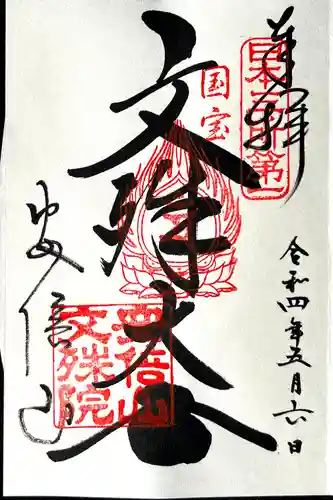 奉拝
日本三所第一
国宝
文殊大
安倍山
安倍山
文殊院
令和四年五月六日